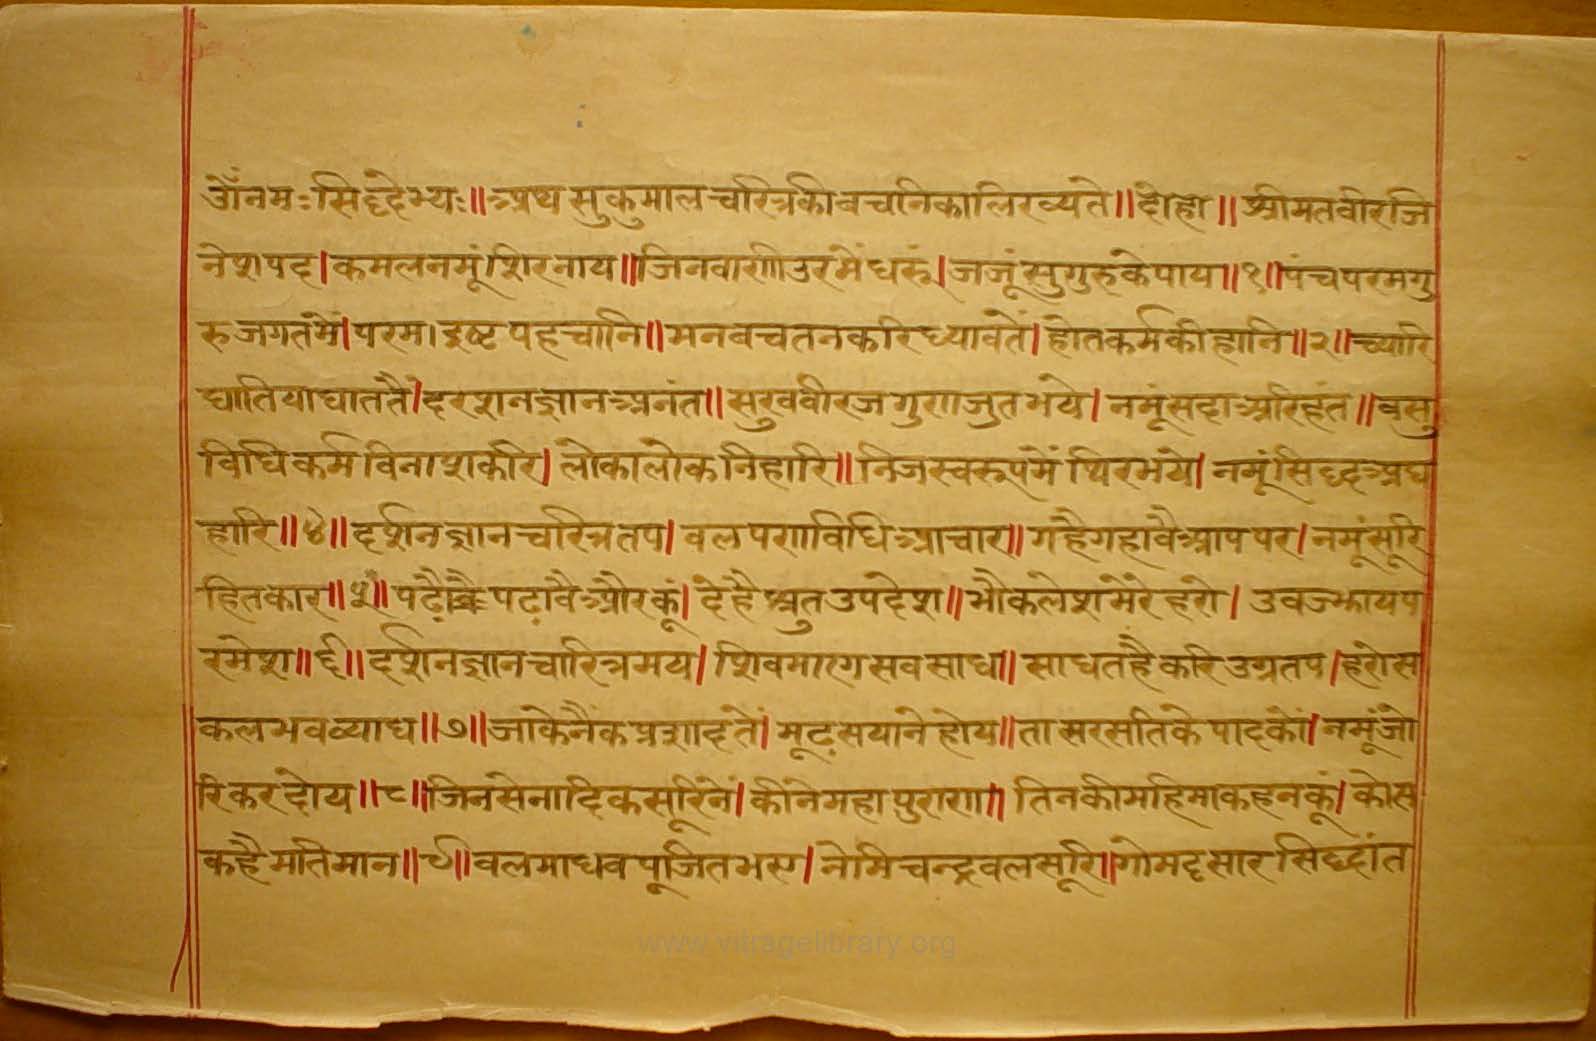 ॐनमःसिद्देभ्यः॥अथ सुकुमाल चरित्रकी बचनिका लिख्यते॥दोहा॥श्रीमतवीरजि
नेशपद।कमलनमूं शिरनाय॥जिनवाणी उरमें धरूं।जजूं सुगुरुके पाय॥१॥पंचपरमगु
रु जगतमें।परम।इष्ट पहचानि॥मनबचतनकरि ध्यावतें।होतकर्मकी हानि॥२॥च्यारि
घातियाघाततै।दरशनज्ञानअनंत॥सुखवीरज गुणजुतभये।नमूंसदाअरिहंत॥वसु
विधिकर्म विनाशकरि।लोकालोक निहारि॥निजस्वरूपमें थिरभये।नमूंसिद्धअघ
हारि॥४॥दर्शनज्ञान चरित्र तप।वल पणविधि आचार॥गहैगहावैआप पर।नमूंसूरि
हितकार॥५॥पढ़ै पढ़ावैऔरकूं।देहै श्रुत उपदेश॥भौकलेश मेरे हरो।उवज्झायप
रमेश॥६॥दर्शनज्ञानचारित्रमय।शिवमारग सव साध॥साधतहै करि उग्रतप।हरोस
कलभवव्याध॥७॥जाकेनैंक प्रशादतें।मूढ़ सयाने होय॥ता सरसतिके पादकों।नमूंजो
रिकरदोय॥८॥जिनसेनादिकसूरिनें।कीने महापुराण॥तिनकीमहिमाकहनकूं।कोस
कहै मतिमान॥९॥वलमाधव पूजितभए।नेमिचन्द्रवलसूरि॥गोमट्टसार सिद्धांत
www.vitragelibrary.org